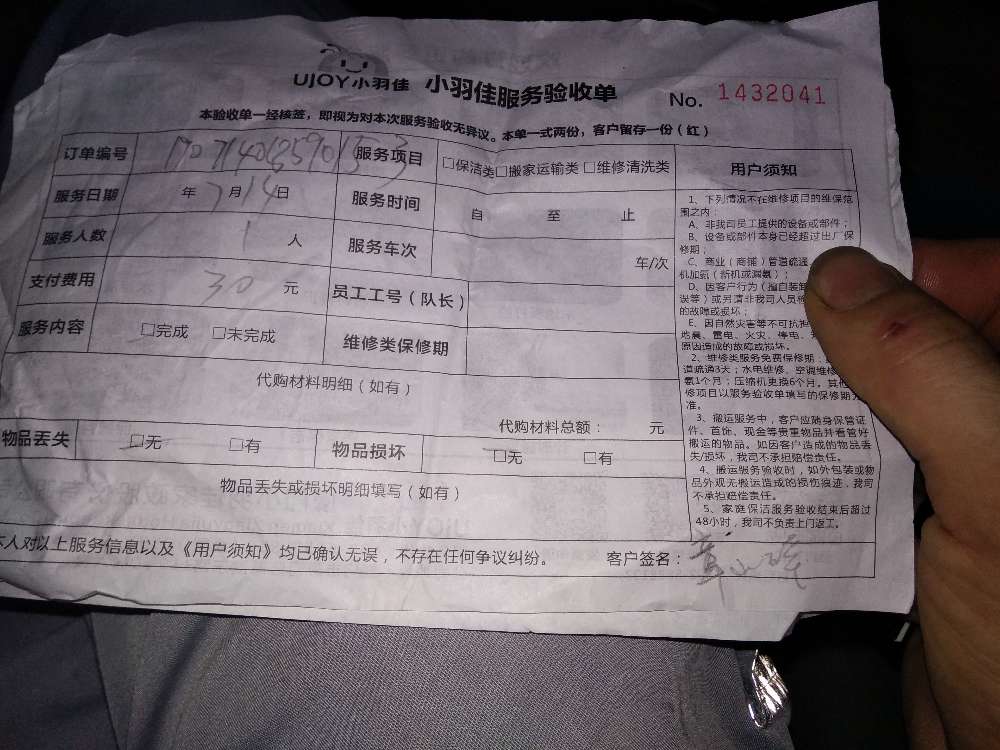 UJOY小羽佳 小羽佳服务验收单 No. 1432041
本验收单一经核签，即视为对本次服务验收无异议。本单一式两份，客户留存一份（红）
订单编号 服务项目 □保洁类□搬家运输类 □维修清洗类
服务日期 年 7月14日 服务时间 自 至 止
服务人数 1 人 服务车次 车/次
支付费用 30 元 员工工号（队长）
服务内容 □完成 □未完成 维修类保修期
代购材料明细（如有）
代购材料总额： 元
物品丢失 □无 □有 物品损坏 □无 □有
物品丢失或损坏明细填写（如有）
本人对以上服务信息以及《用户须知》均已确认无误，不存在任何争议纠纷。 客户签名：
用户须知
1、下列情况不在维修项目的维保范
围之内：
A、非我司员工提供的设备或部件；
B、设备或部件本身已经超过出厂保
修期；
C、商业（商铺）管道疏通
机加氨（新机或漏氨）；
D、因客户行为（擅自装卸
误等）或另请非我司人员
的故障或损坏；
E、因自然灾害等不可抗
地震、雷电、火灾、停电、
原因造成的故障或损坏。
2、维修类服务免费保修期：
道疏通3天；水电维修、空调维修
氨1个月；压缩机更换6个月。其他
修项目以服务验收单填写的保修期为
准。
3、搬运服务中，客户应随身保管证
件、首饰、现金等贵重物品并看管好
搬运的物品。如因客户造成的物品丢
失/损坏，我司不承担赔偿责任。
4、搬运服务验收时，如外包装或物
品外观无搬运造成的损伤痕迹，我司
不承担赔偿责任。
5、家庭保洁服务验收结束后超过
48小时，我司不负责上门返工。